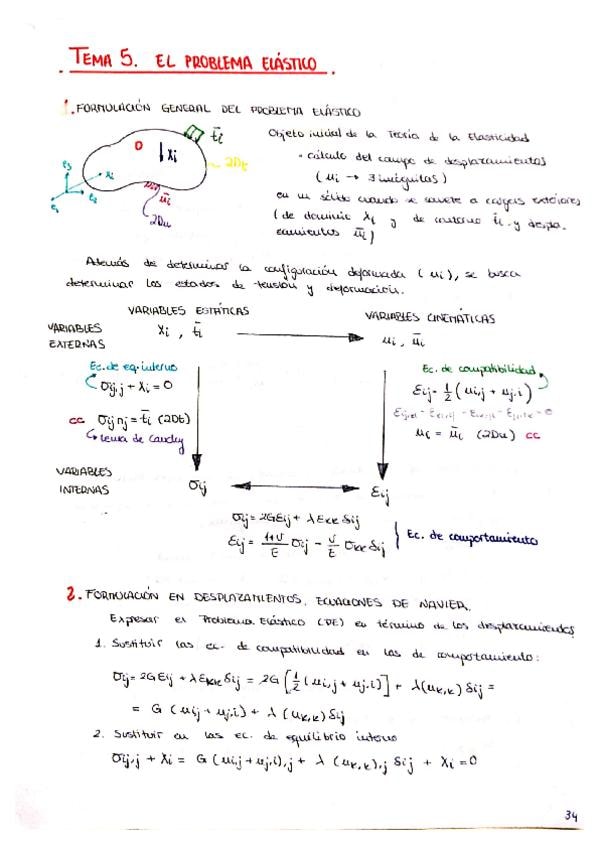 TEMA 5. EL PROBLEMA ELÁSTICO.
1. FORMULACIÓN GENERAL DEL PROBLEMA ELÁSTICO
Objeto inicial de la Teoría de la Elasticidad
D
Xi
t̄i
∂Dt
e3
e2
e1
xi
ūi
∂Du
• cálculo del campo de desplazamientos
(ui → 3 incógnitas)
en un sólido cuando se somete a cargas exteriores
(de dominio Xi y de contorno t̄i y despla-
zamientos ūi)
Además de determinar la configuración deformada (ui), se busca
determinar los estados de tensión y deformación.
VARIABLES ESTÁTICAS
VARIABLES CINEMÁTICAS
VARIABLES EXTERNAS
Xi , t̄i
ui , ūi
Ec. de eq. interno
σij,j + Xi = 0
cc σij nj = t̄i (∂Dt)
Lema de Cauchy
Ec. de compatibilidad
εij = 1/2 (ui,j + uj,i)
ui = ūi (∂Du) cc
VARIABLES INTERNAS
σij
εij
σij = 2Gεij + λεkk δij
εij = (1+ν)/E σij - ν/E σkk δij
Ec. de comportamiento
2. FORMULACIÓN EN DESPLAZAMIENTOS. ECUACIONES DE NAVIER.
Expresar el Problema Elástico (PE) en término de los desplazamientos
1. Sustituir las ec. de compatibilidad en las de comportamiento:
σij = 2Gεij + λεkk δij = 2G [1/2 (ui,j + uj,i)] + λ(uk,k) δij =
= G (ui,j + uj,i) + λ (uk,k) δij
2. Sustituir en las ec. de equilibrio interno
σij,j + Xi = G (ui,j + uj,i),j + λ (uk,k),j δij + Xi = 0
34